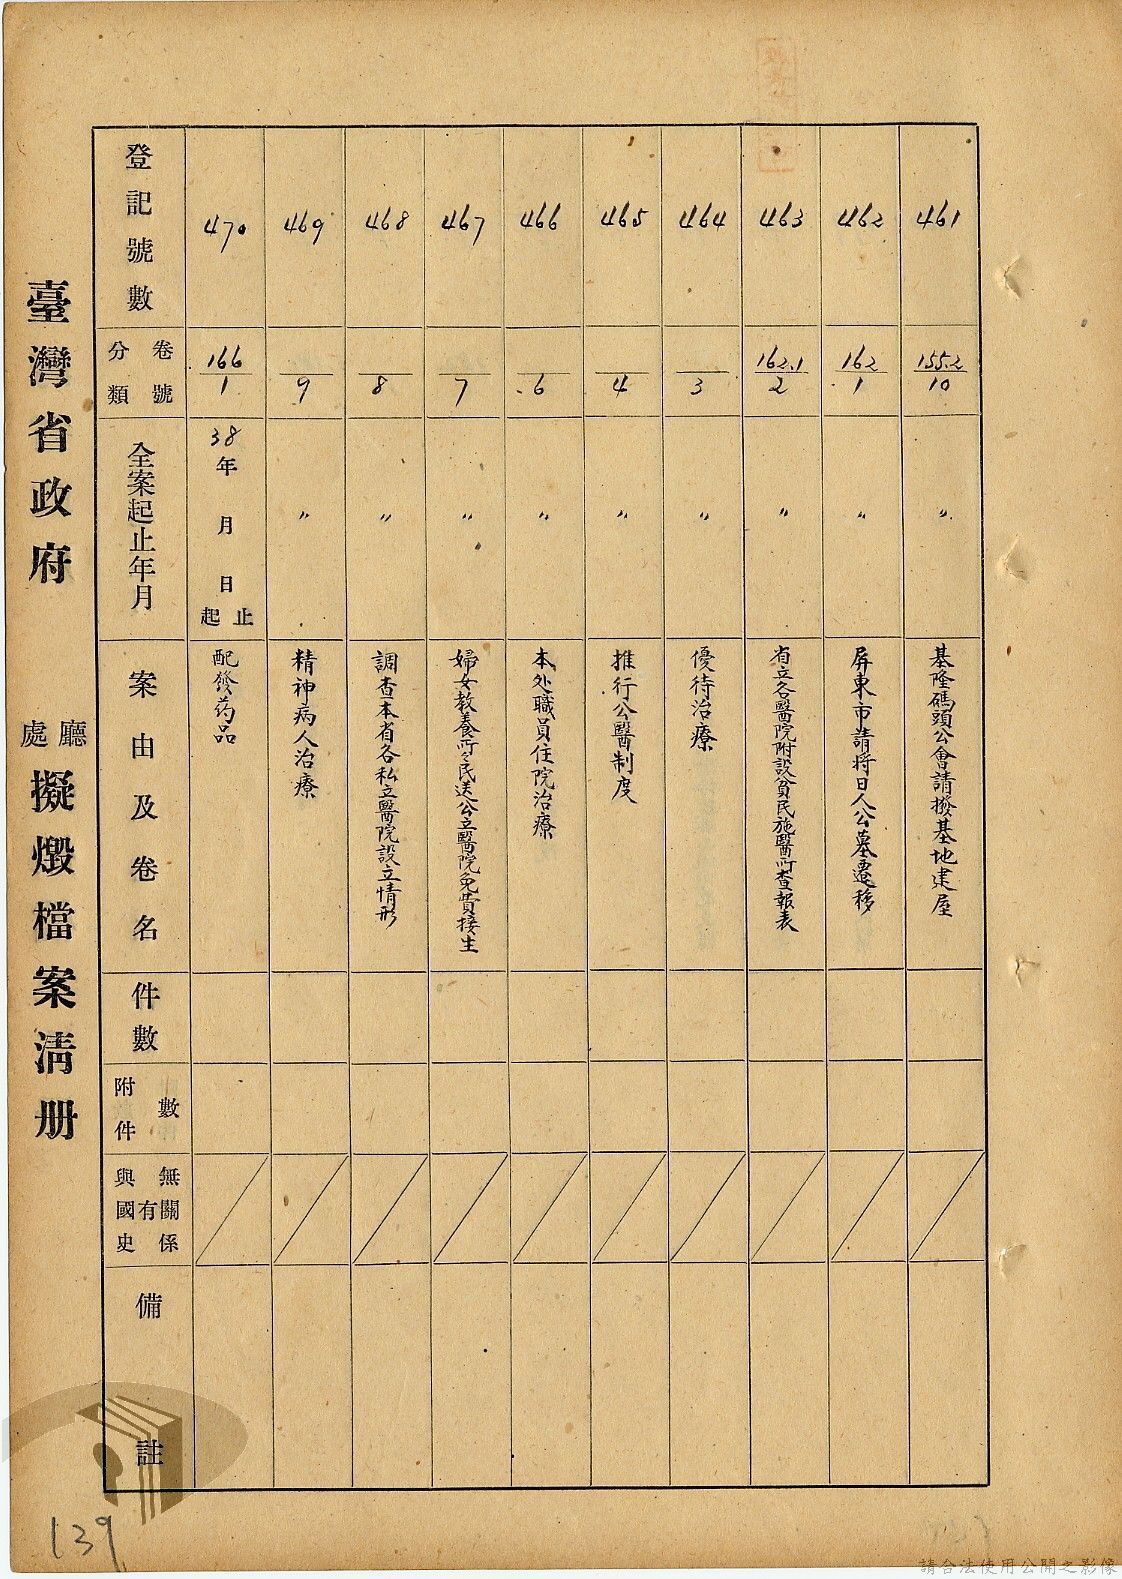 臺灣省政府 廳處擬燬檔案淸册
登記號數
470
469
468
467
466
465
464
463
462
461
分類 卷號
166/1
9
8
7
6
4
3
162.1/2
162/1
155.2/10
全案起止年月
38年 月 日 起止
〃
〃
〃
〃
〃
〃
〃
〃
〃
案由及卷名
配發药品
精神病人治療
調查本省各私立醫院設立情形
婦女教養所々民送公立醫院免費接生
本处職員住院治療
推行公醫制度
優待治療
省立各醫院附設貧民施醫所查報表
屏東市請将日人公墓遷移
基隆碼頭公會請撥基地建屋
件數
附件數
與國史有無關係
備註
139
請合法使用公開之影像